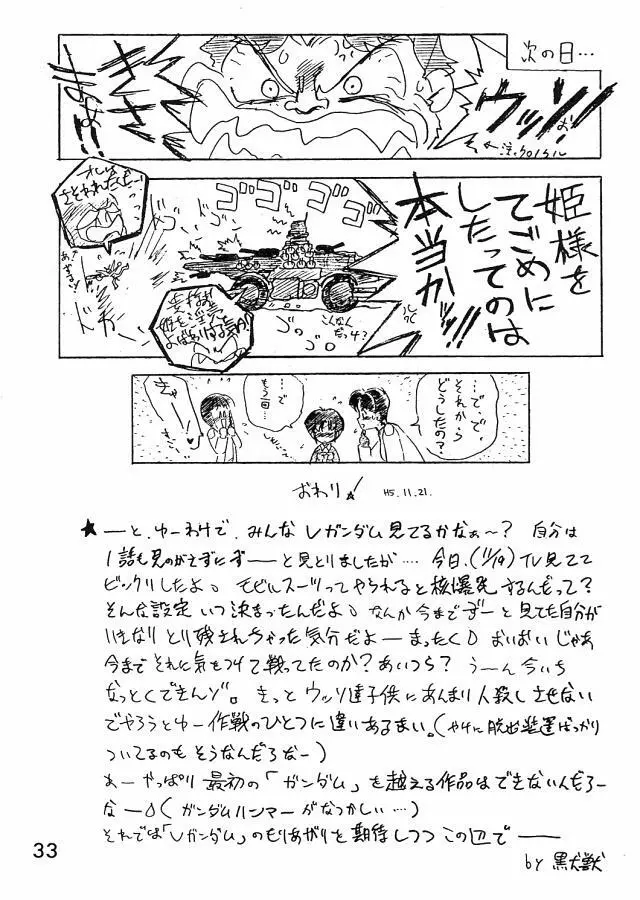 次の日…
ウッソ!!
おぉ
まぁきさまぁ!!
←注.クロノクル
姫様を
てごめに
したってのは
本当かッ!!
ゴゴゴゴ
オレは
ドカーン
ゴロゴロ
こんなん
だっけ?
…で、で、
それから
どうしたの?
…で
もう一回…
きゃー!♥
おわり! H5.11.21.
★ーと、ゆーわけで、みんなVガンダム見てるかなぁ〜? 自分は
1話も見のがさずにずーーと見とりましたが…. 今日、(11/19)TV見てて
ビックリしたよ。モビルスーツってやられると核爆発するんだって?
そんな設定いつ決まったんだよ。なんか今までずーと見てた自分が
いきなりとり残されちゃった気分だよーまったく。おいおいじゃあ
今までそれに気をつけて戦ってたのか?あいつら? うーん今いち
なっとくできんゾ。きっとウッソ達子供にあんまり人殺しさせない
でやろうとゆー作戦のひとつに違いあるまい。(やけに脱出装置ばっかり
ついてるのもそうなんだろなー)
あーやっぱり最初の「ガンダム」を越える作品はできないんだろー
なー。(ガンダムハンマーがなつかしい…)
それでは「Vガンダム」のもりあがりを期待しつつこの辺でーー
by 黒犬獣
33